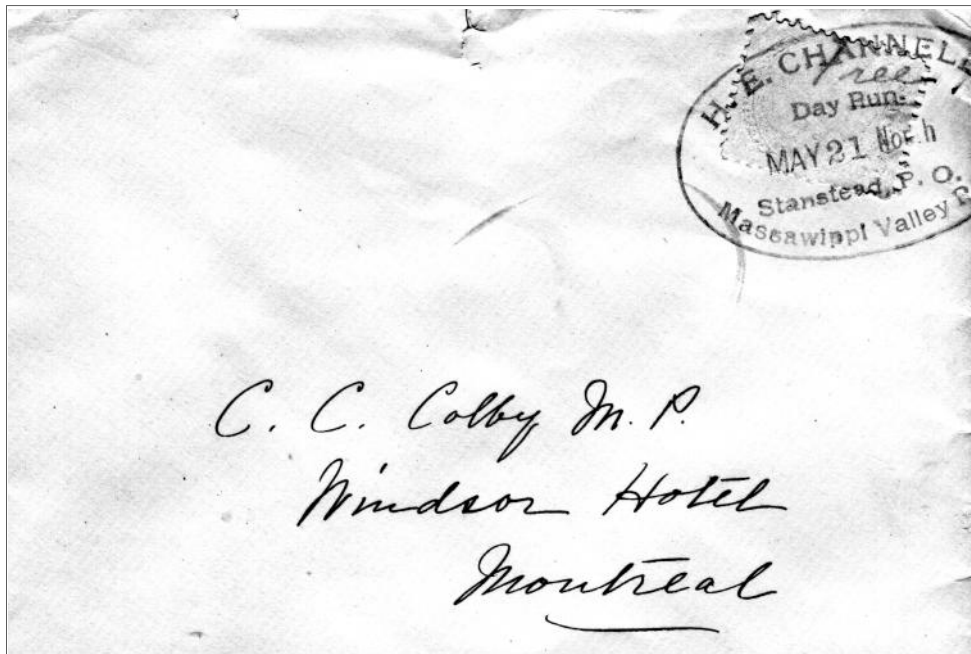 H. E. CHANNELL
Free
Day Run.
MAY 21 North
Stanstead, P. O.
Massawippi Valley
C. C. Colby M. P.
Windsor Hotel
Montreal